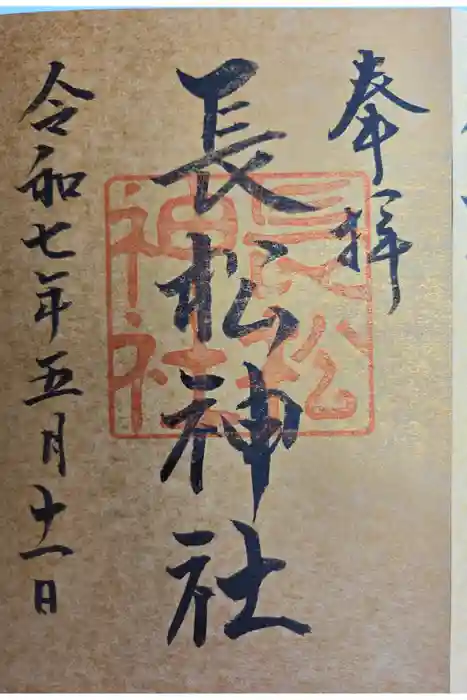 奉拝
長松神社
長松神社
令和七年五月十一日